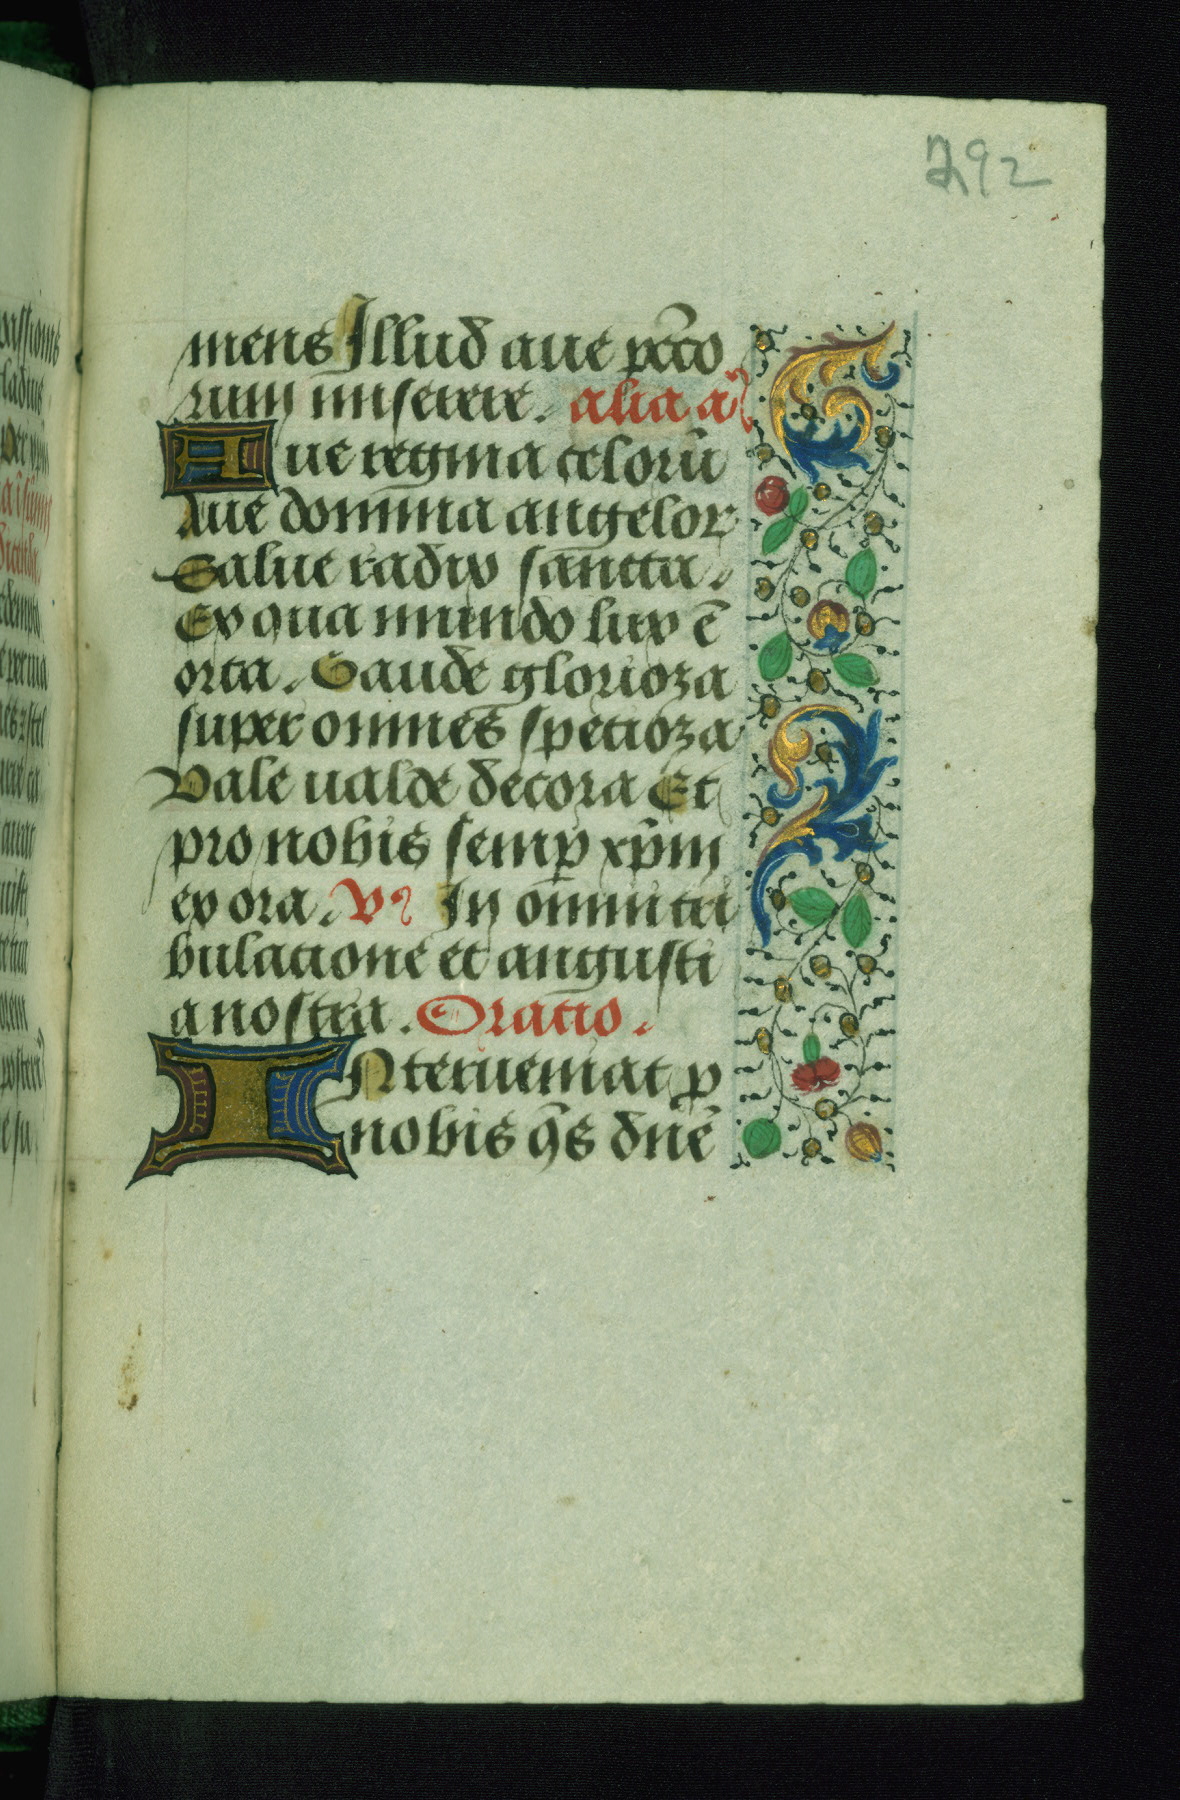 292
mens Illud aue pccō
rum miserere. alia a
Aue regina celorū
Aue domina angelorꝝ
Salue radix sancta.
Ex qua mundo lux ē
orta. Gaude glorioza
super omnes specioza
Vale ualde decora Et
pro nobis semꝑ xp̄m
exora. V In omni tri
bulacione et angusti
a nostra. Oracio.
INterueniat p
nobis qs̄ dn̄e